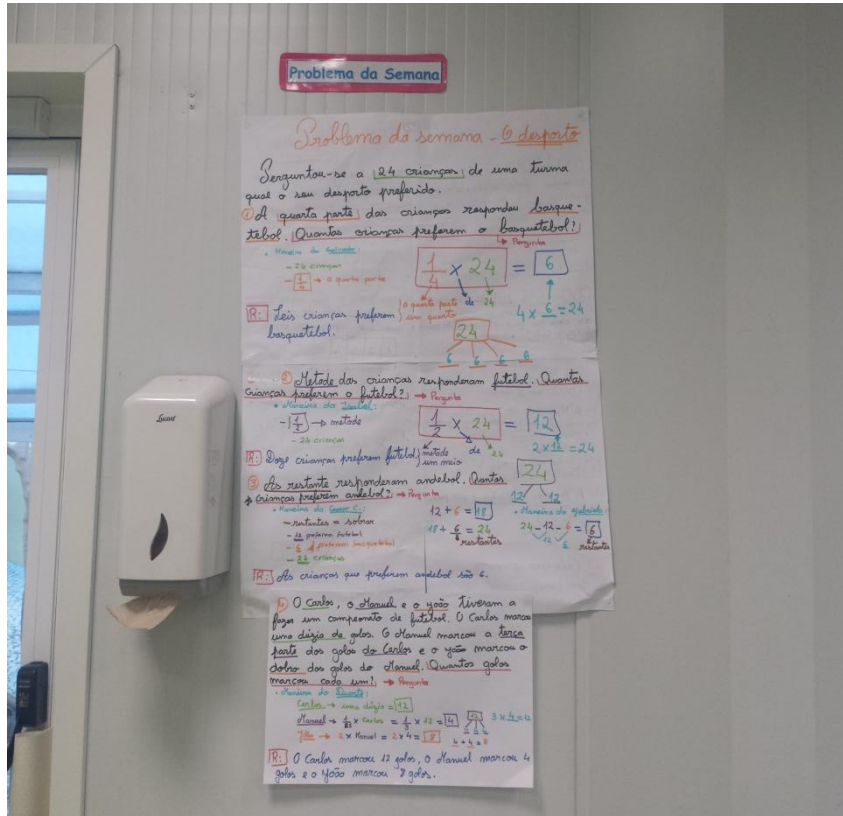 Problema da Semana
Problema da semana - O desporto
Perguntou-se a 24 crianças de uma turma
qual o seu desporto preferido.
① A quarta parte das crianças respondeu basque-
tebol. Quantas crianças preferem o basquetebol?
→ Pergunta
• Maneira do Salvador:
- 24 crianças
- 1/4 → a quarta parte
1/4 x 24 = 6
a quarta parte de 24
um quarto
4 x 6 = 24
R: Seis crianças preferem
basquetebol.
24
6 6 6 6
② Metade das crianças responderam futebol. Quantas
crianças preferem o futebol? → Pergunta
• Maneira da Isabel:
- 1/2 → metade
- 24 crianças
1/2 x 24 = 12
metade de 24
um meio
2 x 12 = 24
R: Doze crianças preferem futebol.
24
12 12
③ As restante responderam andebol. Quantas
crianças preferem andebol? → Pergunta
• Maneira do
- restantes = sobrar
- 12 preferem futebol
- 6 preferem basquetebol
- 24 crianças
12 + 6 = 18
18 + 6 = 24
restantes
• Maneira do Gabriel:
24 - 12 - 6 = 6
12 6
restantes
R: As crianças que preferem andebol são 6.
④ O Carlos, o Manuel e o João tiveram a
fazer um campeonato de futebol. O Carlos marcou
uma dúzia de golos. O Manuel marcou a terça
parte dos golos do Carlos e o João marcou o
dobro dos golos do Manuel. Quantos golos
marcou cada um? → Pergunta
• Maneira do Duarte:
Carlos → uma dúzia = 12
Manuel → 1/3 x Carlos = 1/3 x 12 = 4
João → 2 x Manuel = 2 x 4 = 8
12
3 x 4 = 12
4 + 4 = 8
R: O Carlos marcou 12 golos, o Manuel marcou 4
golos e o João marcou 8 golos.